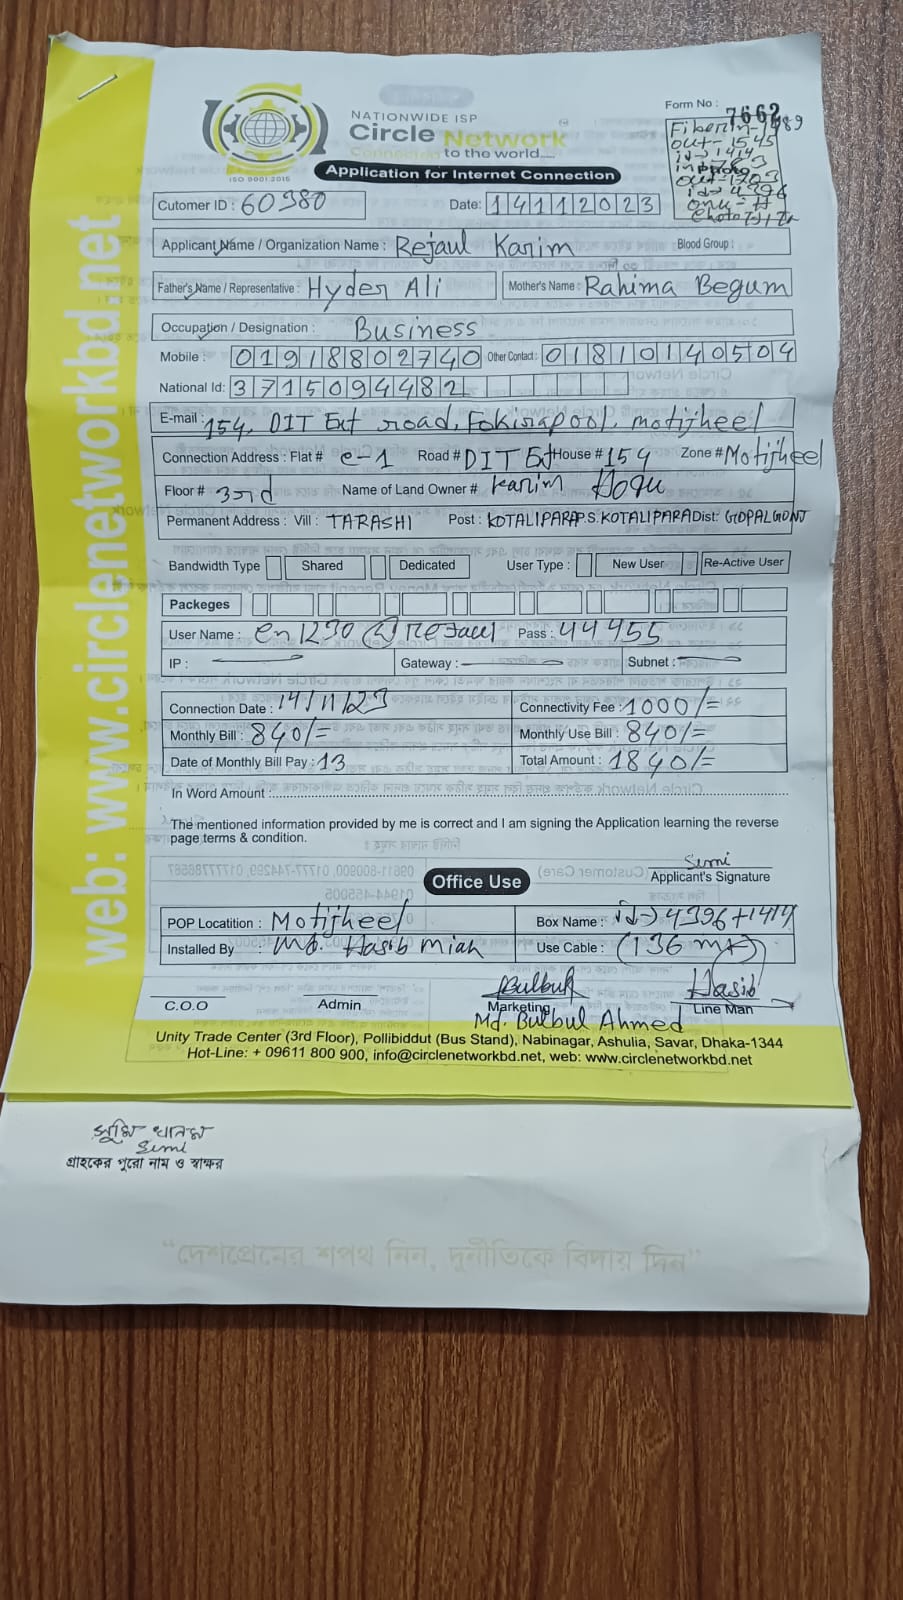 NATIONWIDE ISP
Circle Network
Connecting to the world....
ISO 9001:2015
Application for Internet Connection
Form No : 7662
Fiber in-1989
out-1545
id-1414
out-1703
id-4396
onu-
Cutomer ID : 60980
Date: 14112023
Applicant Name / Organization Name : Rejaul Karim Blood Group :
Father's Name / Representative : Hyder Ali Mother's Name : Rahima Begum
Occupation / Designation : Business
Mobile : 01918802740 Other Contact : 01810140504
National Id: 3715094482
E-mail : 154, DIT Ext road, Fokirapool, motijheel
Connection Address : Flat # e-1 Road # DIT Ext House # 154 Zone # Motijheel
Floor # 3rd Name of Land Owner # Karim Hoqu
Permanent Address : Vill : TARASHI Post : KOTALIPARA P.S. KOTALIPARA Dist: GOPALGONJ
Bandwidth Type Shared Dedicated User Type : New User Re-Active User
Packeges
User Name : cn1290@rejaul Pass : 44455
IP : Gateway : Subnet :
Connection Date : 14/11/23 Connectivity Fee : 1000/=
Monthly Bill : 840/= Monthly Use Bill : 840/=
Date of Monthly Bill Pay : 13 Total Amount : 1840/=
In Word Amount :
The mentioned information provided by me is correct and I am signing the Application learning the reverse
page terms & condition.
Simi
Applicant's Signature
Office Use
POP Locatition : Motijheel Box Name : id→4396+1414
Installed By : Md. Hasib Miah Use Cable : (136 m)
C.O.O Admin Bulbul Marketing Hasib Line Man
Md. Bulbul Ahmed
Unity Trade Center (3rd Floor), Pollibiddut (Bus Stand), Nabinagar, Ashulia, Savar, Dhaka-1344
Hot-Line: + 09611 800 900, info@circlenetworkbd.net, web: www.circlenetworkbd.net
web: www.circlenetworkbd.net
সুমি খানম
Simi
গ্রাহকের পুরো নাম ও স্বাক্ষর
"দেশপ্রেমের শপথ নিন, দুর্নীতিকে বিদায় দিন"